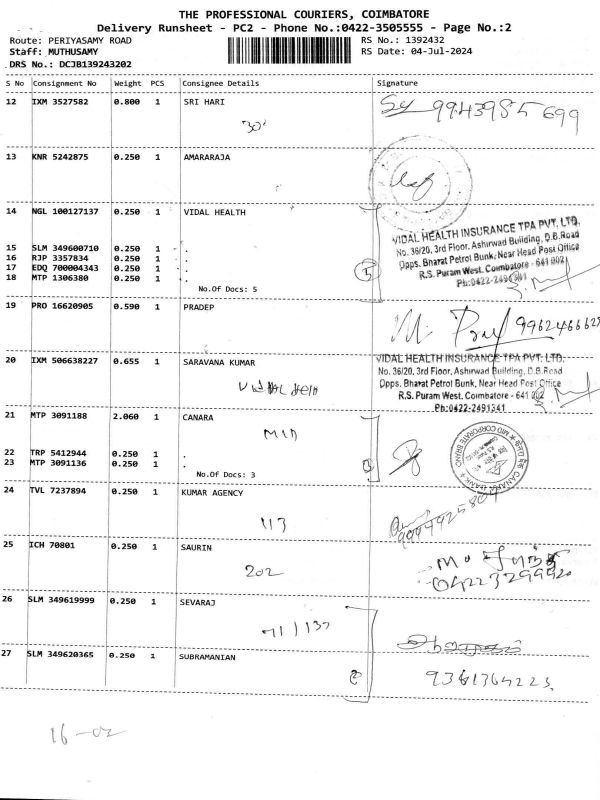 THE PROFESSIONAL COURIERS, COIMBATORE
Delivery Runsheet - PC2 - Phone No.:0422-3505555 - Page No.:2
Route: PERIYASAMY ROAD
RS No.: 1392432
Staff: MUTHUSAMY
RS Date: 04-Jul-2024
DRS No.: DCJB139243202
S No Consignment No Weight PCS Consignee Details Signature
12 IXM 3527582 0.800 1 SRI HARI
9943985699
302
13 KNR 5242875 0.250 1 AMARARAJA
14 NGL 100127137 0.250 1 VIDAL HEALTH
VIDAL HEALTH INSURANCE TPA PVT. LTD.
No. 36/20, 3rd Floor, Ashirwad Building, D.B.Road
Opps. Bharat Petrol Bunk, Near Head Post Office
R.S. Puram West, Coimbatore - 641 002
Ph:0422-2491341
15 SLM 349600710 0.250 1 .
16 RJP 3357834 0.250 1 .
17 EDQ 700004343 0.250 1 .
18 MTP 1306380 0.250 1 .
5
No.Of Docs: 5
19 PRO 16620905 0.590 1 PRADEP
20 IXM 506638227 0.655 1 SARAVANA KUMAR
VIDAL HEALTH INSURANCE TPA PVT. LTD.
No. 36/20, 3rd Floor, Ashirwad Building, D.B.Road
Opps. Bharat Petrol Bunk, Near Head Post Office
R.S. Puram West, Coimbatore - 641 002
Ph:0422-2491341
21 MTP 3091188 2.060 1 CANARA
MID
22 TRP 5412944 0.250 1 .
23 MTP 3091136 0.250 1 .
3
No.Of Docs: 3
24 TVL 7237894 0.250 1 KUMAR AGENCY
113
25 ICH 70801 0.250 1 SAURIN
202
04223299920
26 SLM 349619999 0.250 1 SEVARAJ
27 SLM 349620365 0.250 1 SUBRAMANIAN
2
9361364223
16-02